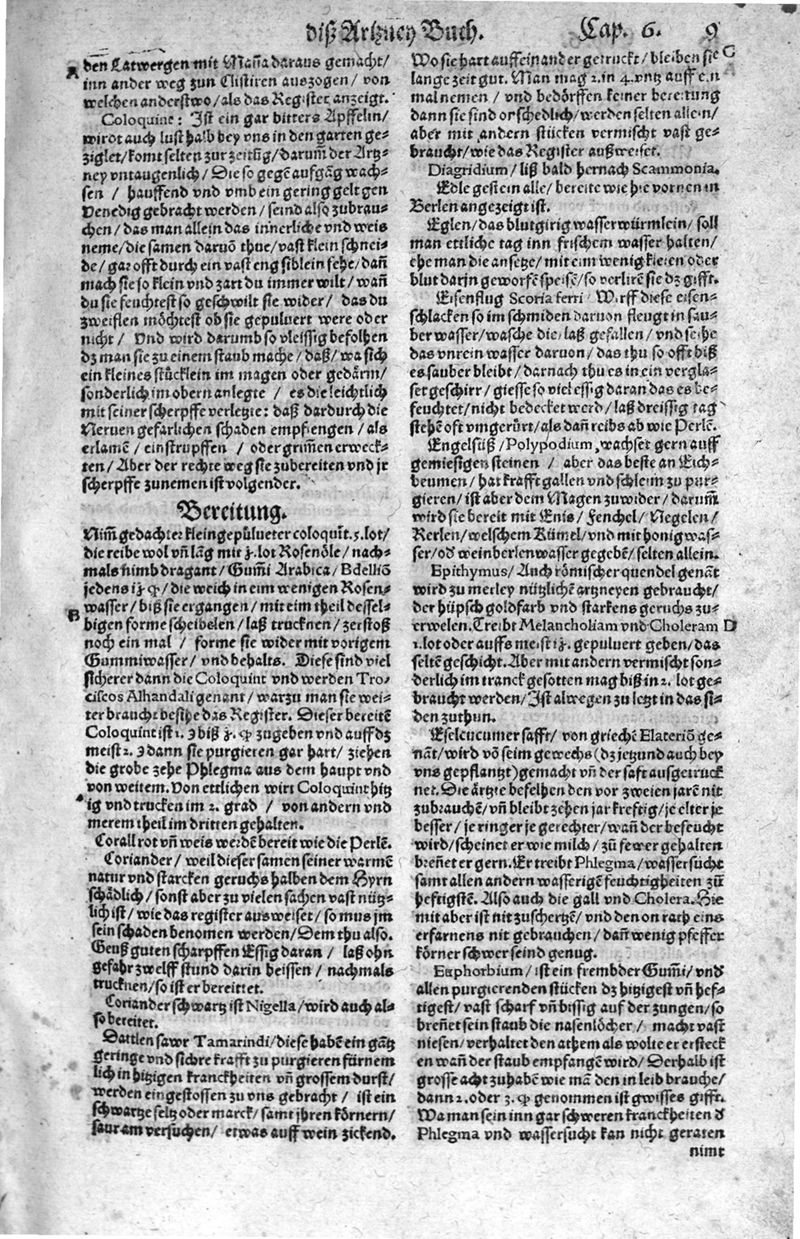 diß Artzney Buch. Cap. 6. 9
A
den Latwergen mit Maña daraus gemacht/
inn ander weg zun Clistiren auszogen/ von
welchen anderstwo/ als das Register anzeigt.
Coloquint: Ist ein gar bitters Apffelin/
wirdt auch lust halb bey vns in den garten ge-
ziglet/ komt selten zur zeitũg/ darum̃ der Artz-
ney vntaugenlich/ Die so gegẽ aufgãg wach-
sen / hauffend vnd vmb ein gering gelt gen
Venedig gebracht werden/ seind also zubrau-
chen/ das man allein das innerliche vnd weis
neme/ die samen daruõ thue/ vast klein schnei-
de/ gar offt durch ein vast eng siblein sehe/ dañ
mach sie so klein vnd zart du immer wilt/ wañ
du sie feuchtest so geschwilt sie wider/ das du
zweiflen möchtest ob sie gepuluert were oder
nicht / Vnd wird darumb so vleissig befolhen
dz man sie zu einem staub mache/ daß/ wa sich
ein kleines stücklein im magen oder gedärm/
sonderlich im obern anlegte / es die leichtlich
mit seiner scherpffe verletze: daß dardurch die
Neruen gefarlichen schaden empfiengen/ als
erlamẽ / einstrupffen / oder grim̃en erweck-
ten/ Aber der rechte weg sie zubereiten vnd jr
scherpffe zunemen ist volgender.
Bereitung.
Nim̃ gedachter klein gepülueter coloquĩt. 5. lot/
die reibe wol vñ lãg mit ʒ. lot Rosenöle/ nach-
mals nimb dragant/ Gum̃i Arabica/ Bdelliõ
jedens
die weich in eim wenigen Rosen-
B
wasser/ biß sie ergangen/ mit eim theil dessel-
bigen forme scheibelen/ laß trucknen/ zerstoß
noch ein mal / forme sie wider mit vorigem
Gummiwasser/ vnd behalts. Diese sind viel
sicherer dann die Coloquint vnd werden Tro-
ciscos Alhandali genant/ warzu man sie wei-
ter braucht besihe das Register. Dieser bereitẽ
Coloquint ist 1.
biß
zugeben vnd auff dz
meist 2.
dann sie purgieren gar hart/ ziehen
die grobe zehe Phlegma aus dem haupt vnd
von weitem. Von ettlichen wirt Coloquint hitz
ig vnd trucken im 2. grad / von andern vnd
merem theil im dritten gehalten.
Corall rot vñ weis werdẽ bereit wie die Perlẽ.
Coriander/ weil dieser samen seiner warmẽ
natur vnd starcken geruchs halben dem Hyrn
schädlich/ sonst aber zu vielen sachen vast nütz-
lich ist/ wie das register ausweiset/ so mus jm
sein schaden benomen werden/ Dem thu also.
Geuß guten scharpffen Essig daran / laß ohn
gefahr zwelff stund darin beissen / nachmals
trucknen/ so ist er bereittet.
Coriander schwartz ist Nigella/ wird auch al-
so bereitet.
Dattlen sawr Tamarindi/ diese habẽ ein gãtz
geringe vnd sichre krafft zu purgieren fürnem
lich in hitzigen kranckheiten vñ grossem durst/
werden eingestossen zu vns gebracht / ist ein
schwartze seltz oder marck/ samt jhren körnern/
saur am versuchen/ etwas auff wein zickend.
C
Wo sie hart auff einander getruckt/ bleiben sie
lange zeit gut. Man mag 2. in 4. vntz auff ein
mal nemen / vnd bedörffen keiner bereitung
dann sie sind or schedlich/ werden selten allein/
aber mit andern stücken vermischt vast ge-
braucht/ wie das Register außweiset.
Diagridium/ liß bald hernach Scammonia.
Edle gestein alle/ bereite wie hie vornen in
Berlen angezeigt ist.
Eglen/ das blutgirig wasser würmlein/ soll
man ettliche tag inn frischem wasser halten/
ehe man die ansetze/ mit eim wenig kleien oder
blut darjn geworfẽ speisẽ/ so verlirẽ sie dz gifft.
Eisenflug Scoria ferri/ Wirff diese eisen-
schlacken so im schmiden daruon fleugt in sau-
ber wasser/ wasche die/ laß gefallen/ vnd seihe
das vnrein wasser daruon/ das thu so offt biß
es sauber bleibt/ darnach thu es in ein vergla-
set geschirr/ giesse so viel essig daran das es be-
feuchtet/ nicht bedecket werd/ laß dreissig tag
stehẽ oft vmgerürt/ als dañ reibs ab wie Perlẽ.
Engelsüß/ Polypodium, wachset gern auff
gemiesigen steinen / aber das beste an Eich-
beumen/ hat krafft gallen vnd schleim zu pur-
gieren/ ist aber dem Magen zuwider/ darum̃
wird sie bereit mit Enis/ Fenchel/ Negelen/
Kerlen/ welschem Kümel/ vnd mit honig was-
ser/ od̃ weinberlen wasser gegebẽ/ selten allein.
Epithymus/ Auch römischer quendel genãt
wird zu merley nützlichẽ artzneyen gebraucht/
der hüpsch goldfarb vnd starkens geruchs zu-
erwelen. Treibt Melancholiam vnd Choleram D
1. lot oder auffs meist
gepuluert geben/ das
seltẽ geschicht. Aber mit andern vermischt son-
derlich im tranck gesotten mag biß in 2. lot ge-
braucht werden/ Ist alwegen zu letzt in das si-
den zuthun.
Eselcucumer safft/ von griechẽ Elateriõ ge-
nãt/ wird võ seim gewechs (dz jetzund auch bey
vns gepflantzt) gemacht vñ der saft ausgetruck
net. Die ärtzte befelhen den vor zweien jarẽ nit
zubrauchẽ/ vñ bleibt zehen jar kreftig/ je elter je
besser/ je ringer je gerechter/ wañ der befeucht
wird/ scheinet er wie milch/ zũ fewer gehalten
breñet er gern. Er treibt Phlegma/ wassersücht
samt allen andern wasserigẽ feuchtigheiten zũ
heftigstẽ. Also auch die gall vnd Cholera. Hie
mit aber ist nit zuschertzẽ/ vnd den on rath eins
erfarnens nit gebrauchen/ dañ wenig pfeffer
körner schwer seind genug.
Euphorbium/ ist ein frembder Gum̃i/ vnd
allen purgierenden stücken dz hitzigest vñ hef-
tigest/ vast scharf vñ bissig auf der zungen/ so
breñet sein staub die nasenlöcher/ macht vast
niesen/ verhaltet den athem als wolte er ersteck
en wañ der staub empfangẽ wird/ Derhalb ist
grosse acht zuhabẽ wie mã den in leib brauche/
dann 2. oder 3.
genommen ist gwisses gifft.
Wa man sein inn gar schweren kranckheiten d̃
Phlegma vnd wassersucht kan nicht geraten
nimt